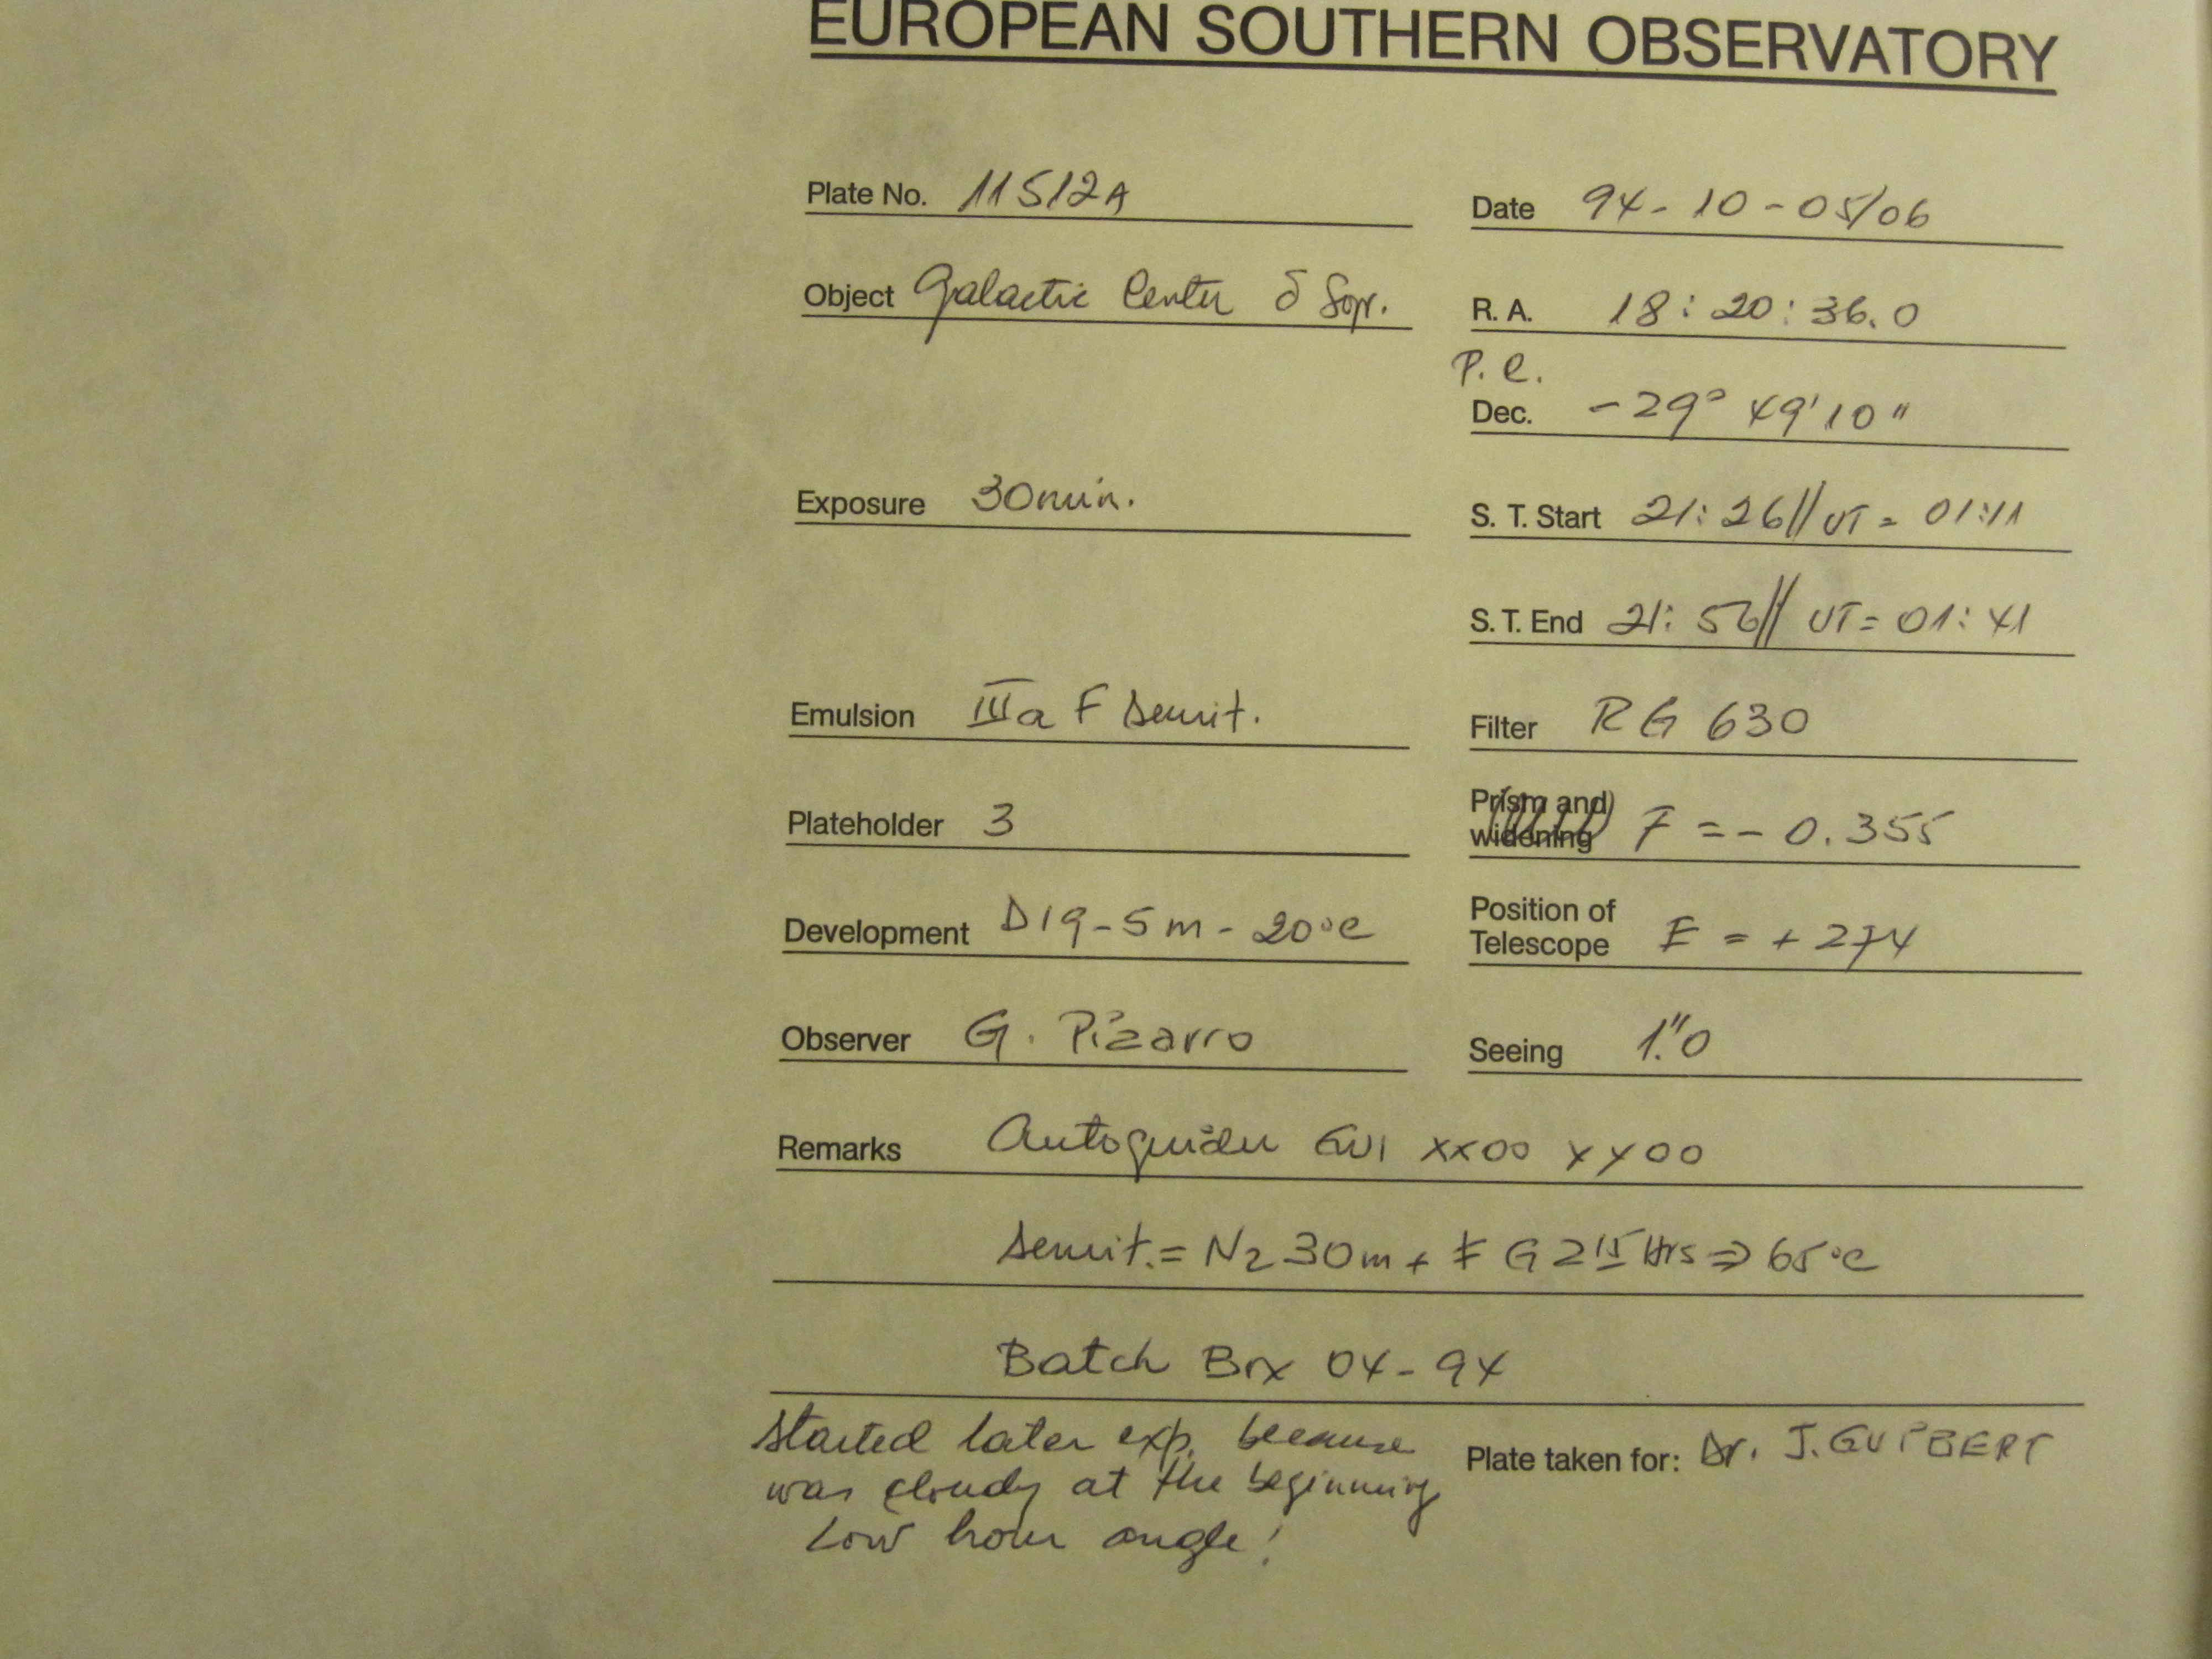 EUROPEAN SOUTHERN OBSERVATORY
Plate No. 11512A
Date 94-10-05/06
Object Galactic Center δ
R. A. 18:20:36.0
P.C.
Dec. -29° 49'10"
Exposure 30min.
S. T. Start 21:26// UT = 01:11
S. T. End 21:56// UT = 01:41
Emulsion IIIa F Sensit.
Filter RG 630
Plateholder 3
Prism and widening F = - 0.355
Development D19-5m-20°C
Position of Telescope E = + 274
Observer G. Pizarro
Seeing 1."0
Remarks Autoguider XX00 YY00
Sensit.= N2 30m + F G 2 15 Hrs ⇒ 65°C
Batch Box 04-94
Started later exp. because
was cloudy at the beginning
Low hour angle!
Plate taken for: Dr. J.